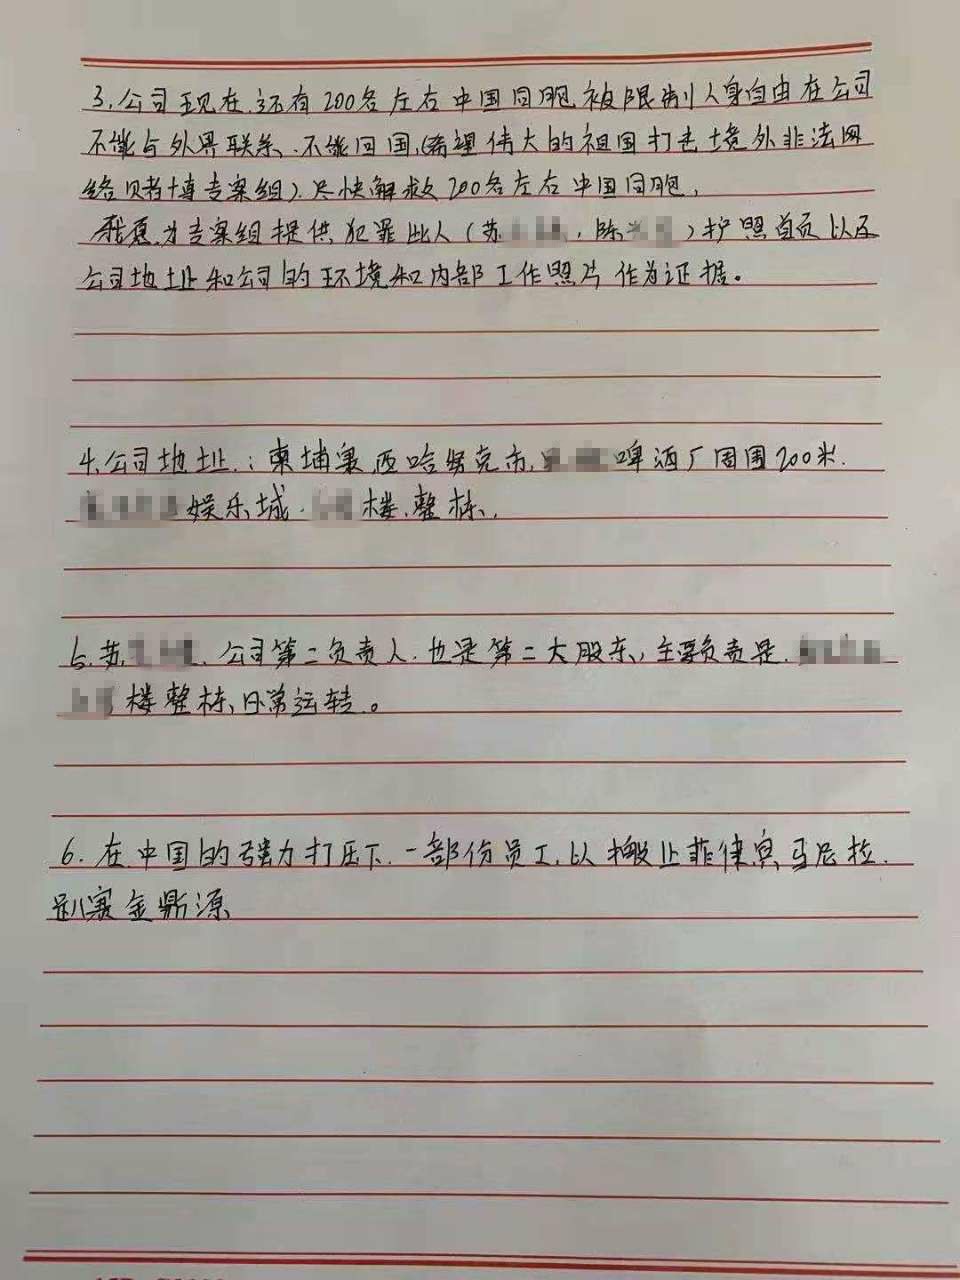 3、公司现在、还有200名左右中国同胞、被限制人身自由在公司
不能与外界联系、不能回国,(希望伟大的祖国打击境外非法网
络贝者博专案组)、尽快解救200名左右中国同胞,
我愿为专案组提供犯罪此人(苏,陈)护照首页以及
公司地址和公司的环境和内部工作照片作为证据。
4、公司地址、:柬埔寨西哈努克市,啤酒厂周围200米.
娱乐城.楼、整栋,
5、苏.公司第二负责人.也是第二大股东,主要负责是.
楼整栋、日常运转。
6.在中国的强力打压下.一部份员工,以搬止菲律宾马尼拉.
寨金鼎源